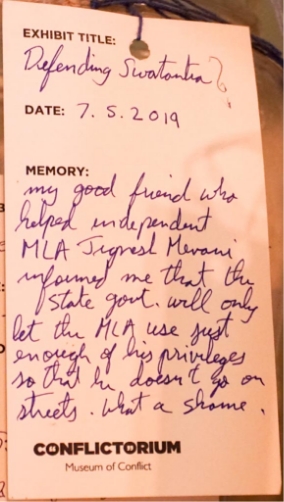 EXHIBIT TITLE:
Defending Swatantra?
DATE: 7. 5. 2019
MEMORY:
my good friend who
helped independent
MLA Jignesh Mevani
informed me that the
state govt. will only
let the MLA use just
enough of his privileges
so that he doesn't go on
streets. What a shame.
CONFLICTORIUM
Museum of Conflict